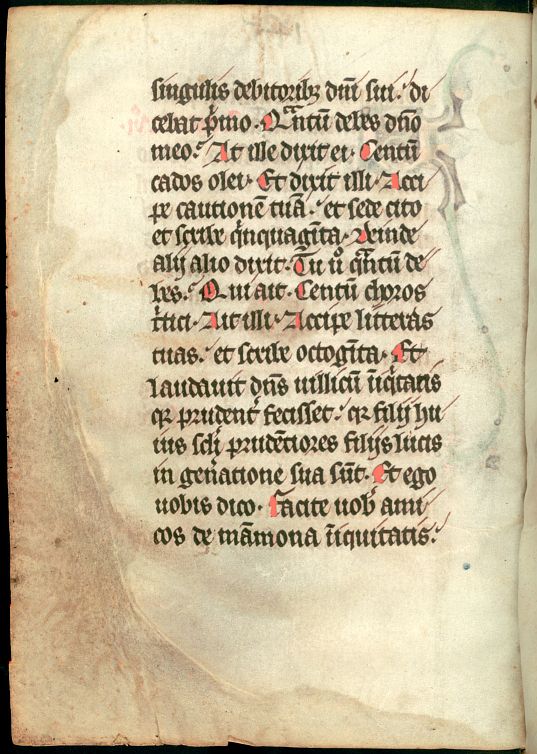 singulis debitoribꝫ dn̄i sui. di
cebat pⁱmo. Qᵃntū debes dn̄o
meo. At ille dixit ei. Centū
cados olei. Et dixit illi. Acci
pe cautionē tuā. et sede cito
et scribe qⁱnquagīta. Deinde
alij alio dixit. Tu uͦ qᵃntū de
bes. Qui ait. Centū choros
tⁱtici. Ait illi. Accipe litteras
tuas. et scribe octogīta. Et
laudauit dn̄s uillicū īiqⁱtatis
qꝛ prudent᷑ fecisset. qꝛ filij hu
ius sc̄li prudētiores filijs lucis
in gen̄atione sua sūt. Et ego
uobis dico. Facite uob᷑ ami
cos de māmona īiquitatis.